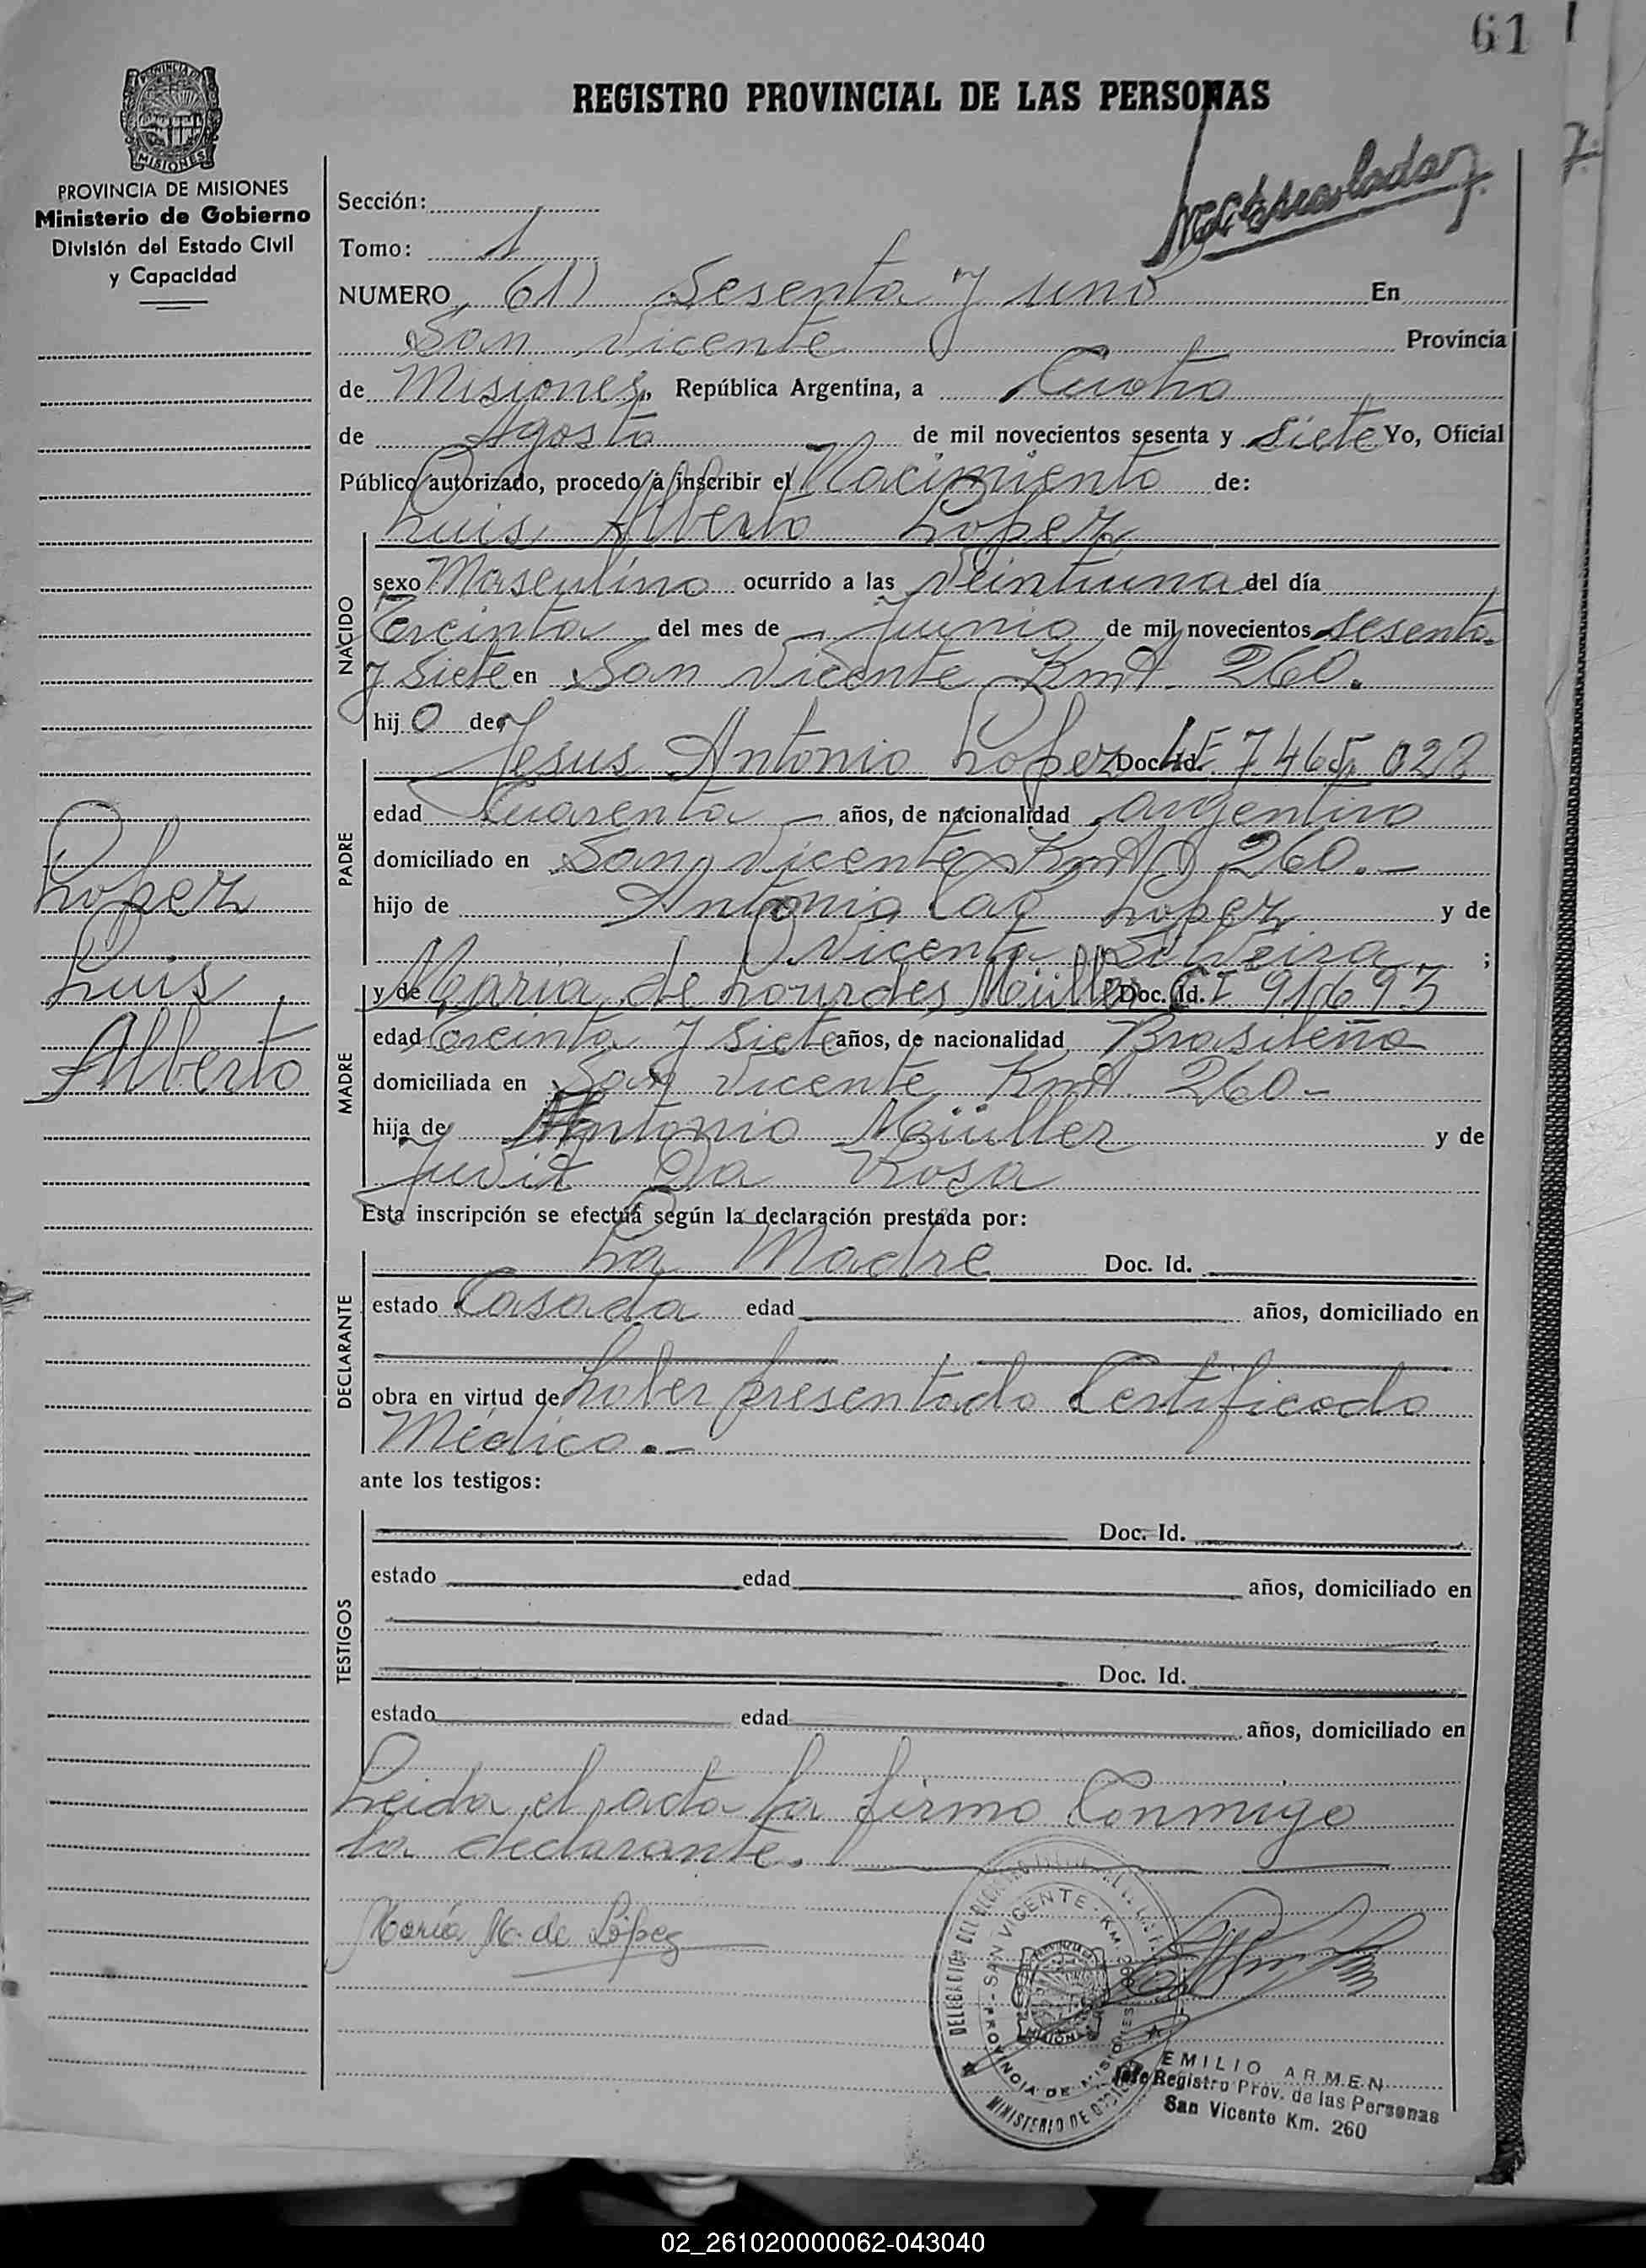 61
REGISTRO PROVINCIAL DE LAS PERSONAS
PROVINCIA DE MISIONES
Ministerio de Gobierno
División del Estado Civil
y Capacidad
MISIONES
7.
Sección:
Tomo: 1
NUMERO 61) Sesenta y uno En
San Vicente Provincia
de Misiones, República Argentina, a Cuatro
de Agosto de mil novecientos sesenta y siete Yo, Oficial
Público autorizado, procedo a inscribir el Nacimiento de:
Luis Alberto Lopez
NACIDO
sexo Masculino ocurrido a las veintiuna del día
Treinta del mes de Junio de mil novecientos sesenta
y siete en San Vicente Kmt. 260.
hijo de
PADRE
Jesus Antonio Lopez Doc. Id. LE 7.465.028
edad Cuarenta años, de nacionalidad argentino
domiciliado en San Vicente Kmt 260.-
hijo de Antonio Lopez y de
Vicenta Silveira ;
MADRE
y de Maria de Lourdes Müller Doc. Id. CI 91693
edad Treinta y Siete años, de nacionalidad Brasileña
domiciliada en San Vicente Kmt. 260-
hija de Antonio Müller y de
Judit Da Rosa
Esta inscripción se efectúa según la declaración prestada por:
DECLARANTE
La Madre Doc. Id.
estado Casada edad años, domiciliado en
obra en virtud de haber presentado Certificado
Médico.-
ante los testigos:
TESTIGOS
Doc. Id.
estado edad años, domiciliado en
Doc. Id.
estado edad años, domiciliado en
Leida el acta la firma Conmigo
la declarante.
María M. de López
Lopez
Luis
Alberto
SAN VICENTE - KM. 260
PROVINCIA DE MISIONES
EMILIO ARMEN
Jefe Registro Prov. de las Personas
San Vicente Km. 260
02_261020000062-043040